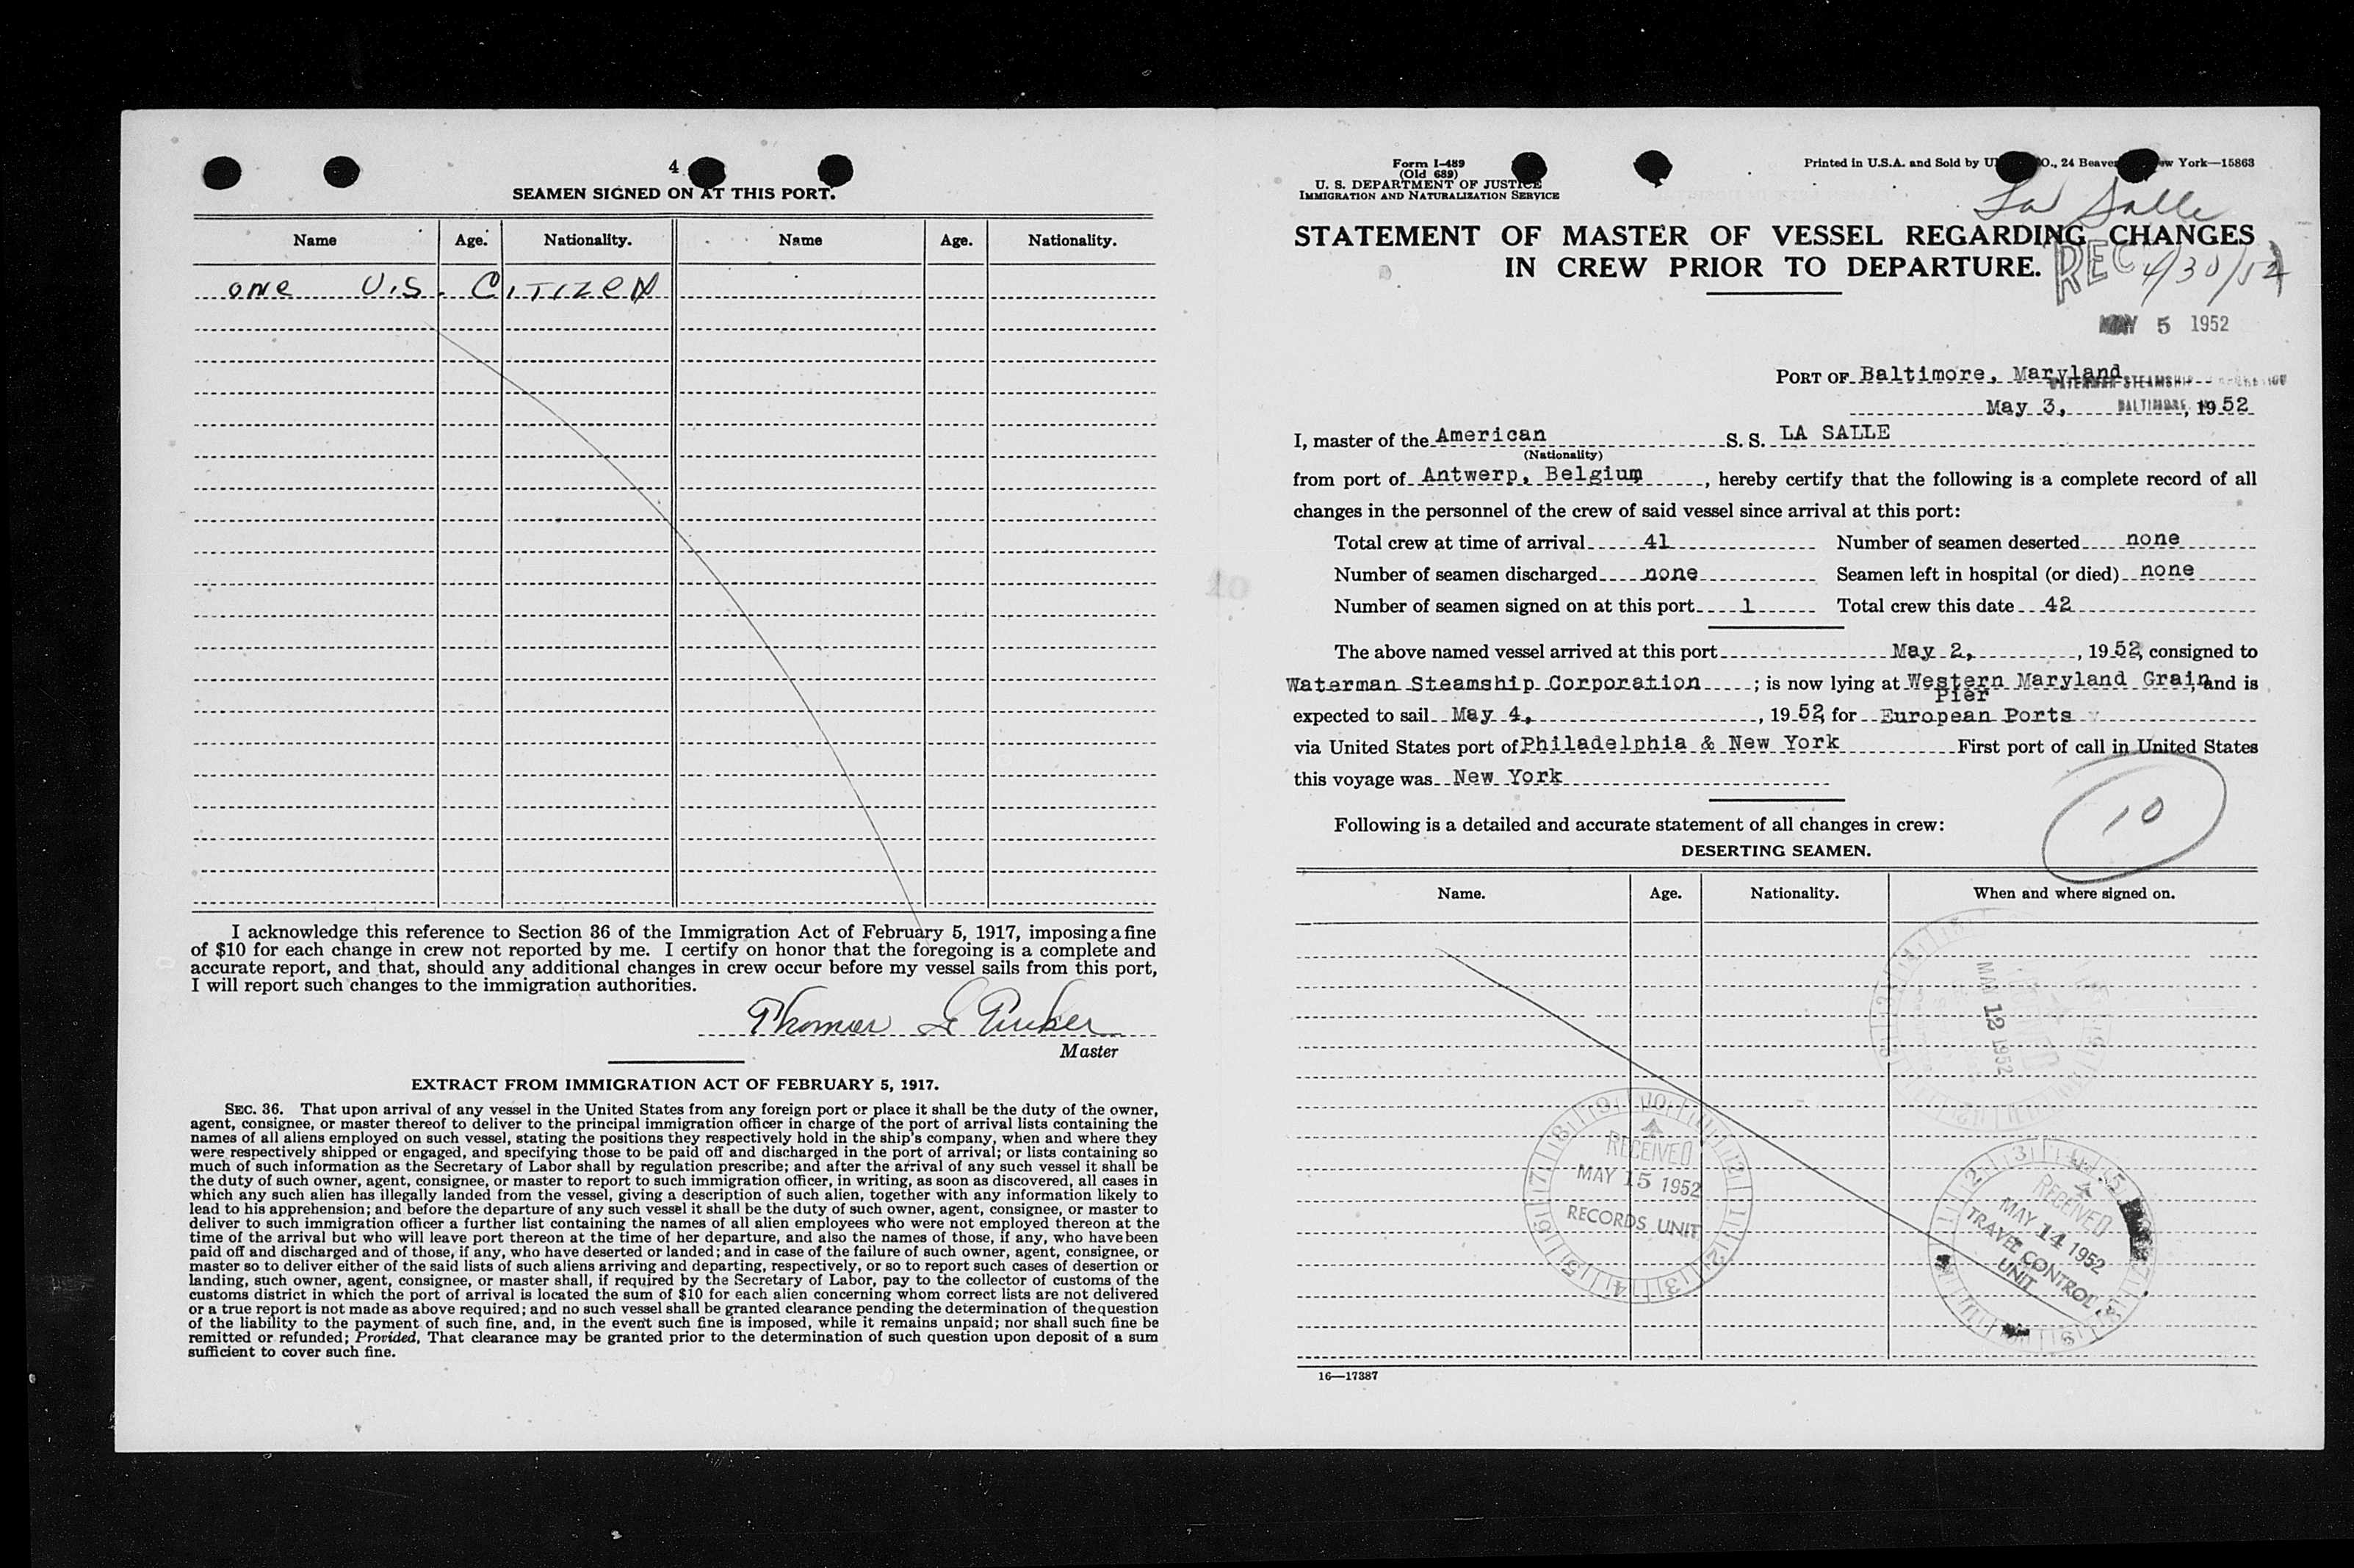 4
SEAMEN SIGNED ON AT THIS PORT.
Name Age. Nationality. Name Age. Nationality.
one U.S. CITIZEN
I acknowledge this reference to Section 36 of the Immigration Act of February 5, 1917, imposing a fine
of $10 for each change in crew not reported by me. I certify on honor that the foregoing is a complete and
accurate report, and that, should any additional changes in crew occur before my vessel sails from this port,
I will report such changes to the immigration authorities.
Thomas
Master
EXTRACT FROM IMMIGRATION ACT OF FEBRUARY 5, 1917.
SEC. 36. That upon arrival of any vessel in the United States from any foreign port or place it shall be the duty of the owner,
agent, consignee, or master thereof to deliver to the principal immigration officer in charge of the port of arrival lists containing the
names of all aliens employed on such vessel, stating the positions they respectively hold in the ship's company, when and where they
were respectively shipped or engaged, and specifying those to be paid off and discharged in the port of arrival; or lists containing so
much of such information as the Secretary of Labor shall by regulation prescribe; and after the arrival of any such vessel it shall be
the duty of such owner, agent, consignee, or master to report to such immigration officer, in writing, as soon as discovered, all cases in
which any such alien has illegally landed from the vessel, giving a description of such alien, together with any information likely to
lead to his apprehension; and before the departure of any such vessel it shall be the duty of such owner, agent, consignee, or master to
deliver to such immigration officer a further list containing the names of all alien employees who were not employed thereon at the
time of the arrival but who will leave port thereon at the time of her departure, and also the names of those, if any, who have been
paid off and discharged and of those, if any, who have deserted or landed; and in case of the failure of such owner, agent, consignee, or
master so to deliver either of the said lists of such aliens arriving and departing, respectively, or so to report such cases of desertion or
landing, such owner, agent, consignee, or master shall, if required by the Secretary of Labor, pay to the collector of customs of the
customs district in which the port of arrival is located the sum of $10 for each alien concerning whom correct lists are not delivered
or a true report is not made as above required; and no such vessel shall be granted clearance pending the determination of the question
of the liability to the payment of such fine, and, in the event such fine is imposed, while it remains unpaid; nor shall such fine be
remitted or refunded; Provided, That clearance may be granted prior to the determination of such question upon deposit of a sum
sufficient to cover such fine.
Form I-489
(Old 689)
U. S. DEPARTMENT OF JUSTICE
IMMIGRATION AND NATURALIZATION SERVICE
Printed in U.S.A. and Sold by O., 24 Beaver New York—15863
La Salle
STATEMENT OF MASTER OF VESSEL REGARDING CHANGES
IN CREW PRIOR TO DEPARTURE.
REC 4/30/52
MAY 5 1952
PORT OF Baltimore, Maryland
WATERMAN STEAMSHIP
May 3, 1952
BALTIMORE
I, master of the American S. S. LA SALLE
(Nationality)
from port of Antwerp, Belgium, hereby certify that the following is a complete record of all
changes in the personnel of the crew of said vessel since arrival at this port:
Total crew at time of arrival 41 Number of seamen deserted none
Number of seamen discharged none Seamen left in hospital (or died) none
Number of seamen signed on at this port 1 Total crew this date 42
The above named vessel arrived at this port May 2, 1952, consigned to
Waterman Steamship Corporation; is now lying at Western Maryland Grain, and is
Pier
expected to sail May 4, 1952, for European Ports
via United States port of Philadelphia & New York First port of call in United States
this voyage was New York
10
Following is a detailed and accurate statement of all changes in crew:
DESERTING SEAMEN.
Name. Age. Nationality. When and where signed on.
MAY 12 1952
RECEIVED
MAY 15 1952
RECORDS UNIT
RECEIVED
MAY 14 1952
TRAVEL CONTROL
UNIT
16—17387